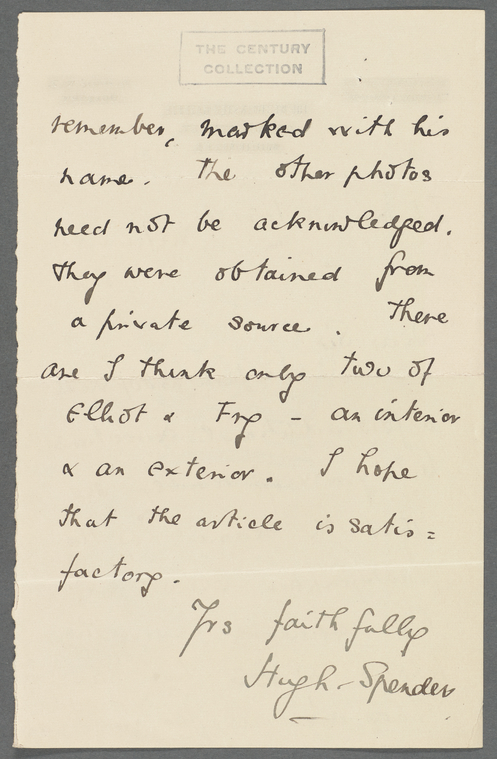 THE CENTURY
COLLECTION
remember, marked with his
name. The other photos
need not be acknowledged.
They were obtained from
a private source. There
are I think only two of
Elliot & Fry - an interior
& an exterior. I hope
that the article is satis=
factory.
Yrs faithfully
Hugh-Spender